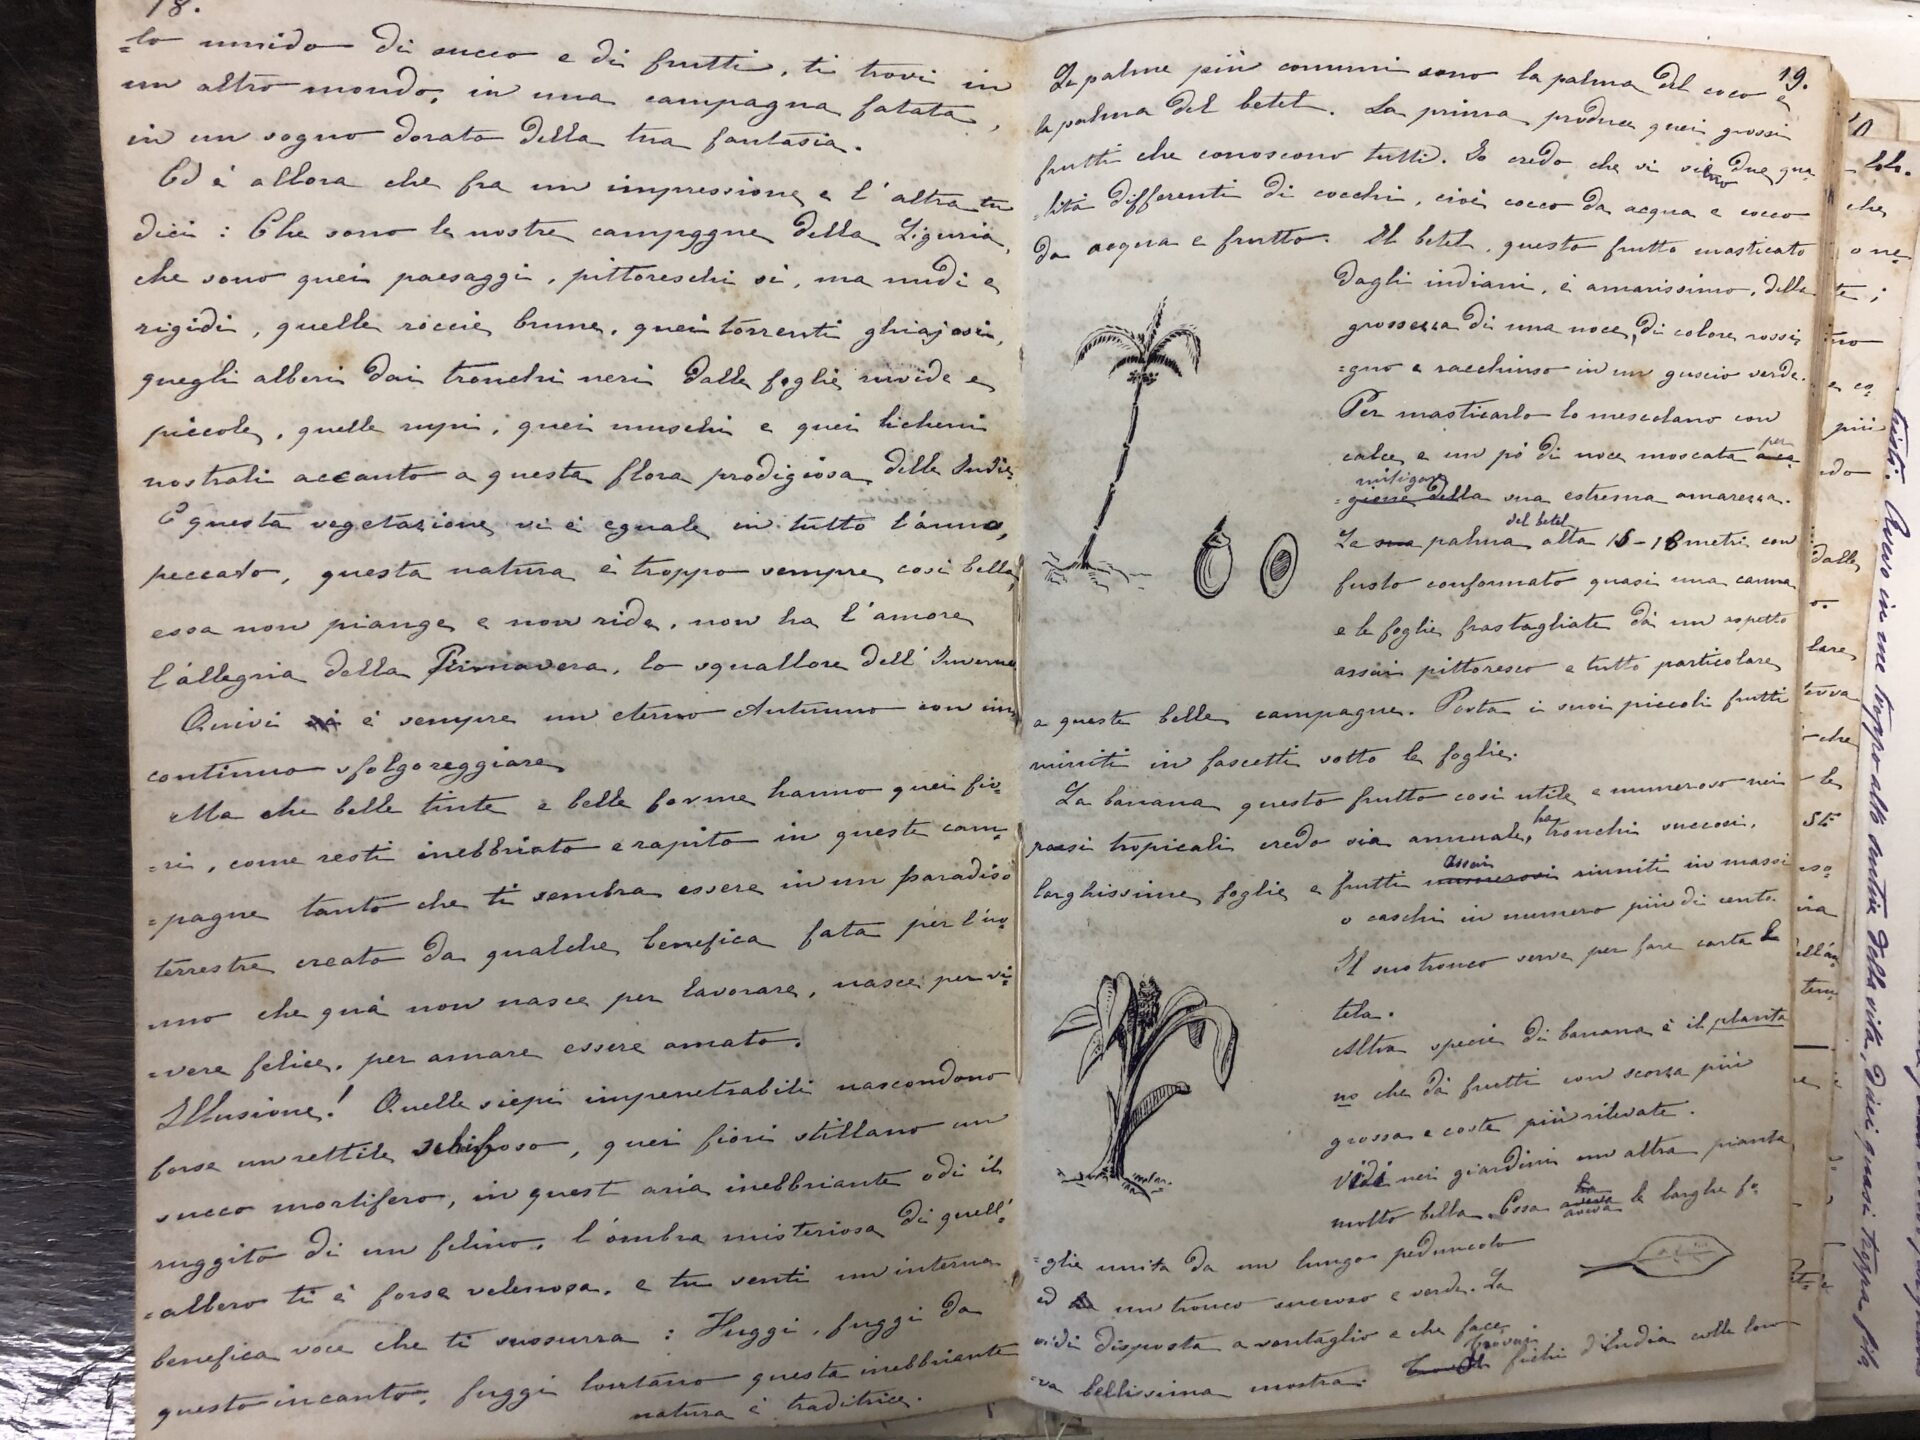 18.
=to umido di succo e di frutti, ti trovi in
un altro mondo, in una campagna fatata,
in un sogno dorato della tua fantasia.
Ed è allora che fra un impressione e l'altra tu
dici: Che sono le nostre campagne della Liguria,
che sono quei paesaggi, pittoreschi si, ma nudi e
rigidi, quelle roccie brune, quei torrenti ghiajosi,
quegli alberi dai tronchi neri dalle foglie ruvide e
piccole, quelle rupi, quei muschi e quei licheni
nostrali accanto a questa flora prodigiosa delle Indie.
E questa vegetazione vi è eguale in tutto l'anno,
peccato, questa natura è troppo sempre così bella,
essa non piange e non ride, non ha l'amore
l'allegria della Primavera, lo squallore dell'Inverno
Quivi è sempre un eterno Autunno con un
continuo sfolgoreggiare
Ma che belle tinte e belle forme hanno quei fio=
=ri, come resti inebbriato e rapito in queste cam=
=pagne tanto che ti sembra essere in un paradiso
terrestre creato da qualche benefica fata per l'uo=
mo che quà non nasce per lavorare, nasce per vi=
=vere felice, per amare essere amato.
Illusione! Quelle siepi impenetrabili nascondono
forse un rettile schifoso, quei fiori stillano un
succo mortifero, in quest aria inebbriante odi il
ruggito di un felino, l'ombra misteriosa di quell'
=albero ti è forse velenosa, e tu senti un interna
benefica voce che ti sussurra: Fuggi, fuggi da
questo incanto, fuggi lontano questa inebbriante
natura è traditrice.
19.
Le palme più comuni sono la palma del coco e
la palma del betel. La prima produce quei grossi
frutti che conoscono tutti. Io credo che vi siano due qua=
=lità differenti di cocchi, cioè cocco da acqua e cocco
da acqua e frutto. Il betel, questo frutto masticato
dagli indiani, è amarissimo, della
grossezza di una noce, di colore rossi
=gno e racchiuso in un guscio verde.
Per masticarlo lo mescolano con
calce e un pò di noce moscata per
mitigare
della sua estrema amarezza.
del betel
La sua palma alta 15-18 metri con
fusto conformato quasi una canna
e le foglie frastagliate dà un aspetto
assai pittoresco e tutto particolare
a queste belle campagne. Porta i suoi piccoli frutti
riuniti in fascetti sotto le foglie.
La banana questo frutto così utile e numeroso nei
paesi tropicali credo sia annuale, ha tronchi succosi,
larghissime foglie e frutti numerosi assai riuniti in massi
o caschi in numero più di cento.
Il suo tronco serve per fare carta e
tela.
Altra specie di banana è il planta
no che dà frutti con scorza più
grossa e coste più rilevate.
Vidi nei giardini un altra pianta
molto bella. Essa aveva ha le larghe fo=
=glie unita da un lungo peduncolo
ed un tronco succoso e verde. La
vidi disposta a vantaglio e che face
va bellissima mostra. Trovai fichi d'India colle loro